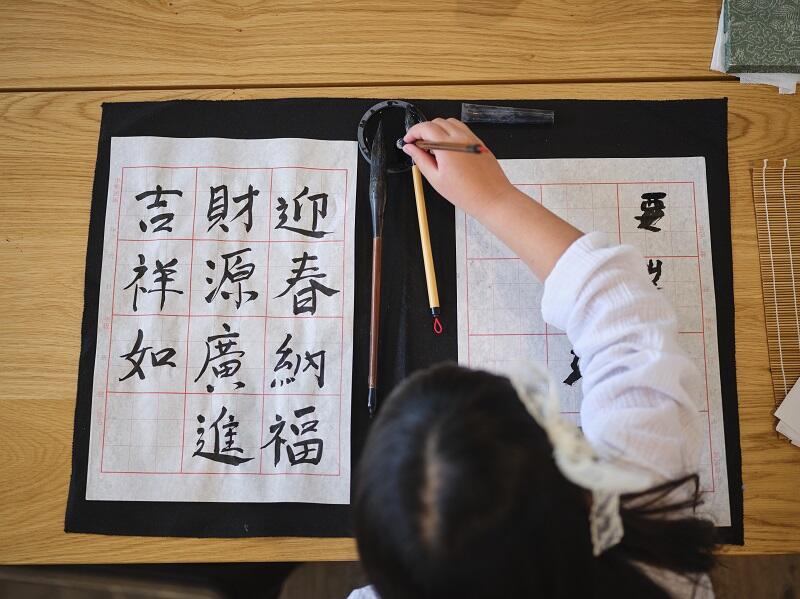 迎春納福
財源廣進
吉祥如